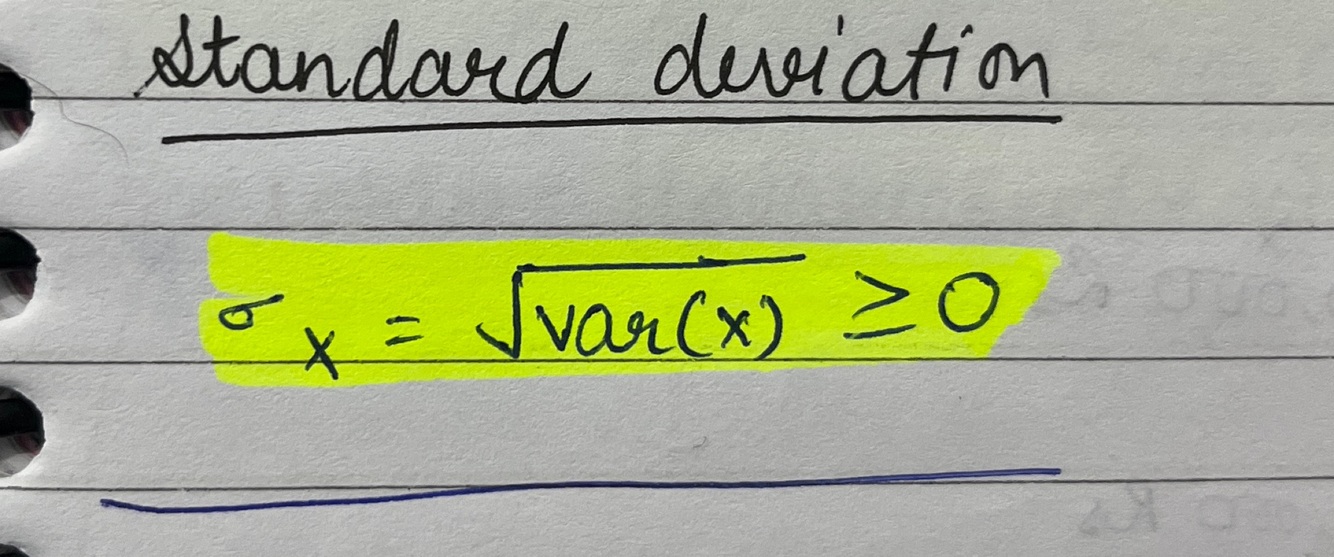 Standard deviation
σx = √var(x) ≥ 0